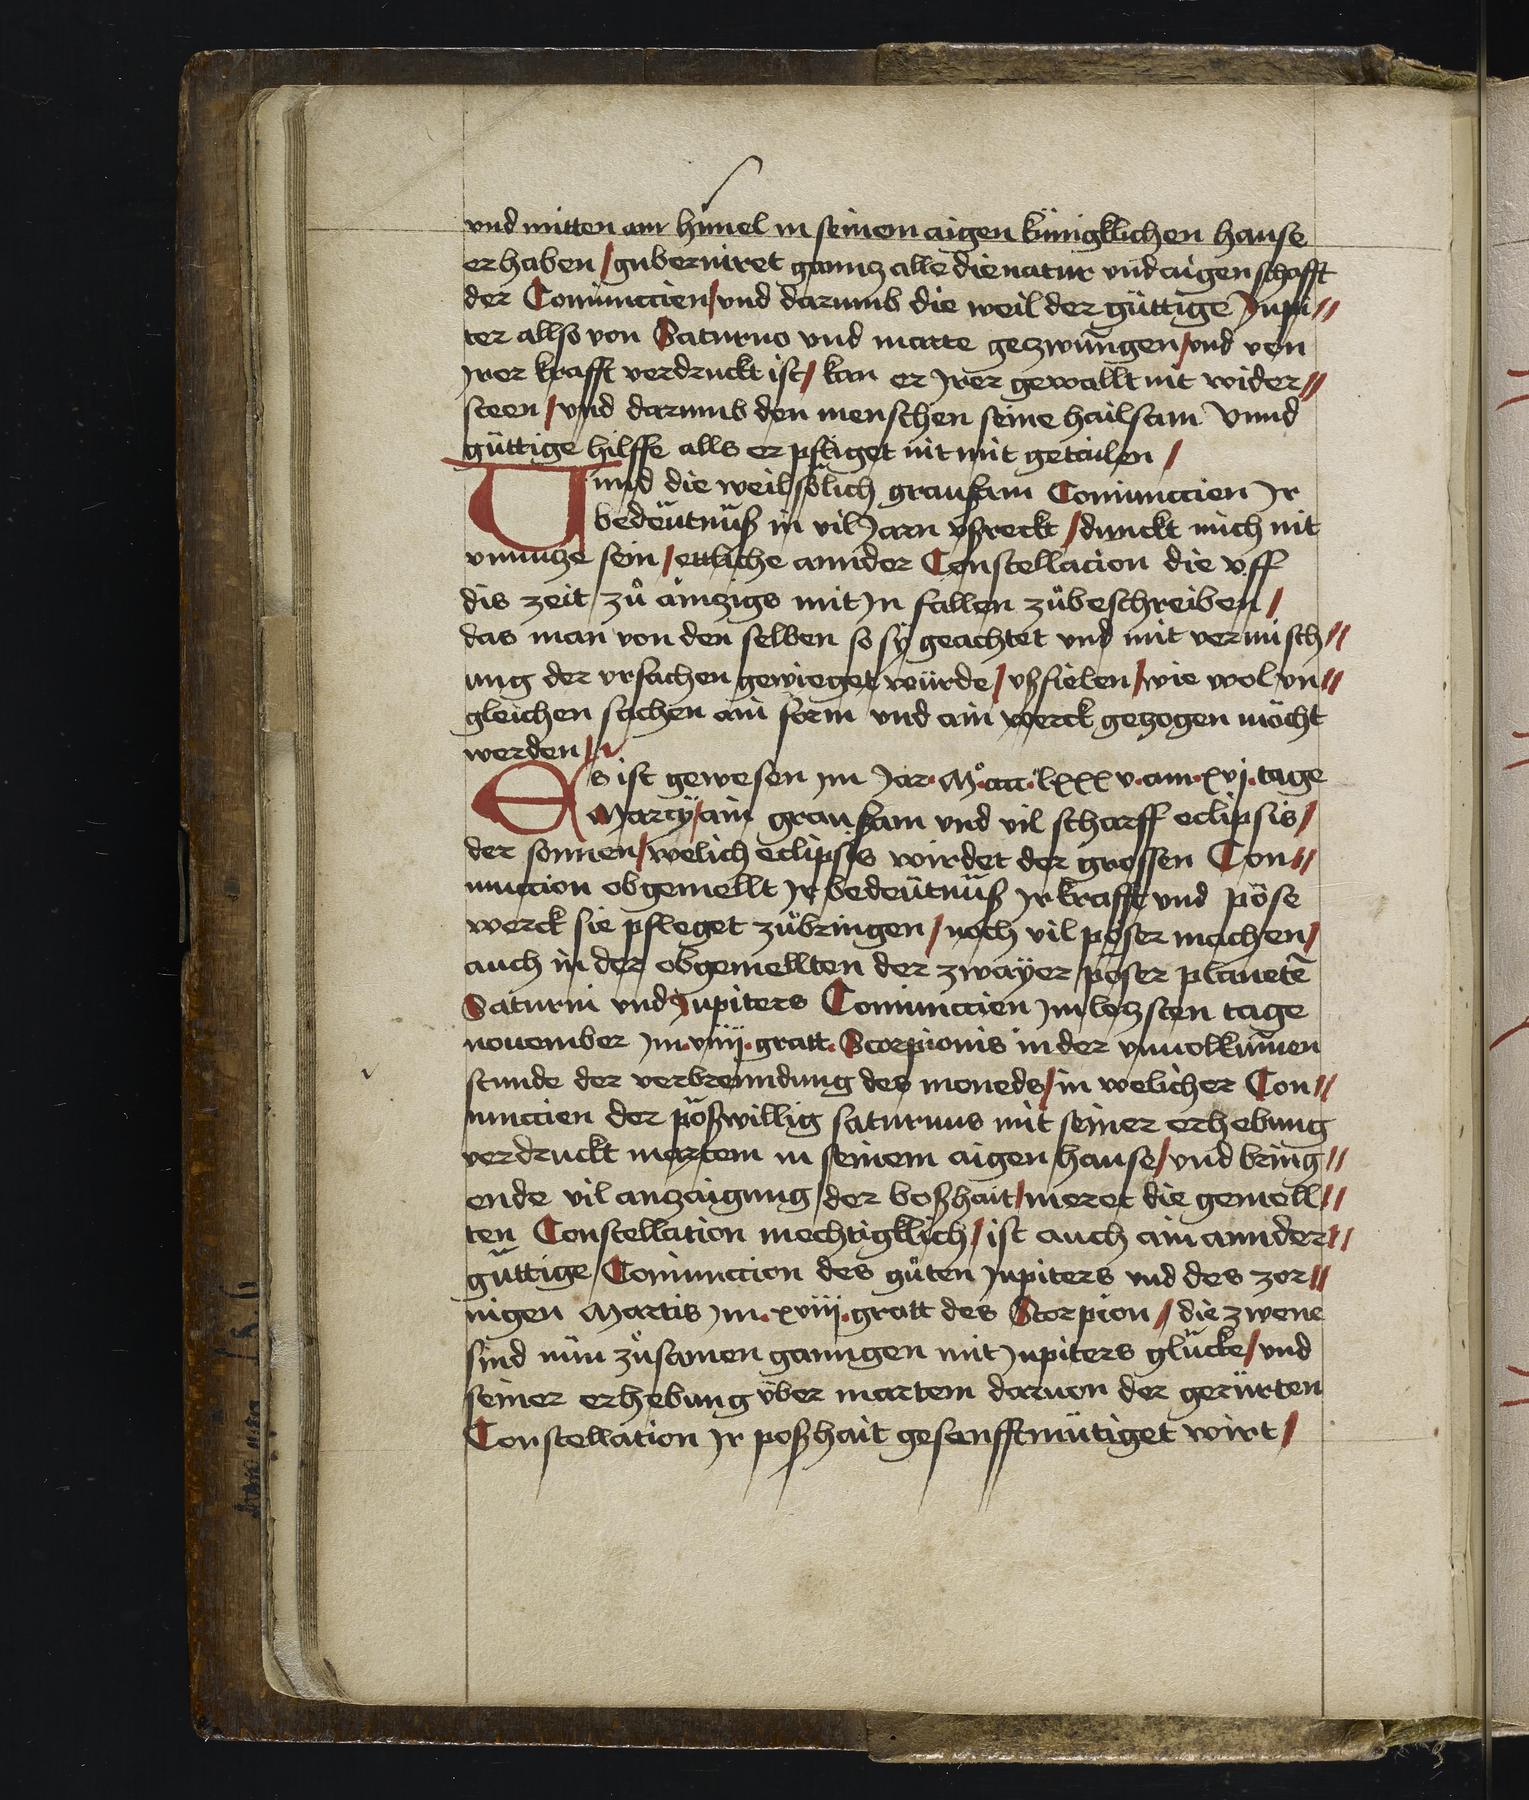 vnd mitten am himel in seinem aigen künigklichen hause
erhaben / guberniret ganntz alle die natur vnd aigenschafft
der Coniunccien / vnd darumb die weil der güttige Jupi//
ter allso von Saturno vnd marte getzwungen / vnd von
Jrer krafft verdruckt ist / kan er Jrer gewallt nit wider//
steen / vnd darumb den menschen seine hailsam Vnnd
güttige hilffe alls er pfliget nit mit getailen /
Vnnd die weil sölich grausam Coniunccien Jr
bedeütnüß in vil Jarn vßreckt / dunckt mich nit
vnnutze sein / ettliche annder Constellacion die vff
dis zeit zů aintzigs mit Jn fallen zůbeschreiben /
das man von den selben so sy geachtet vnd mit vermisch//
ung der vrsachen gewieget würde / vßfielen / wie wol vn//
gleichen sachen ain form vnd ain werck getzogen möcht
werden /
Es ist gewesen im Jar · Mº · cccc · lxxxv · am · xvj · tage
Marcÿ / ain grausam vnd vil scharff eclipsis /
der sonnen / welich eclipsis wirdet der grossen Con//
iunccion obgemellt Jr bedeütnüß Jr krafft vnd pöse
werck sie pfleget zůbringen / noch vil pöser machen /
auch in der obgemellten der zwayer pöser planetē
Saturni vnd Jupiters Coniunccien Jm letzsten tage
nouember Jm · viiij · gratt · Scorpionis in der vnuolkumen
stunde der verbrenndung des moneds / in welicher Con//
iunccien der pößwillig saturnus mit seiner erhebung
verdruckt martem in seinem aigen hause / vnd bring//
ende vil antzaigung der boßhait / meret die gemell//
ten Constellation mechtigklich / ist auch ain annder//
güttige Coniunccion des gůten Jupiters vnd des zor//
nigen Martis Jm · xviij · gratt des Scorpion / die zwene
sind nün zůsamen ganngen mit Jupiters glücke / vnd
seiner erhebung über martem daruon der gerürten
Constellation Jr poßhait gesenfftmütiget wirt /